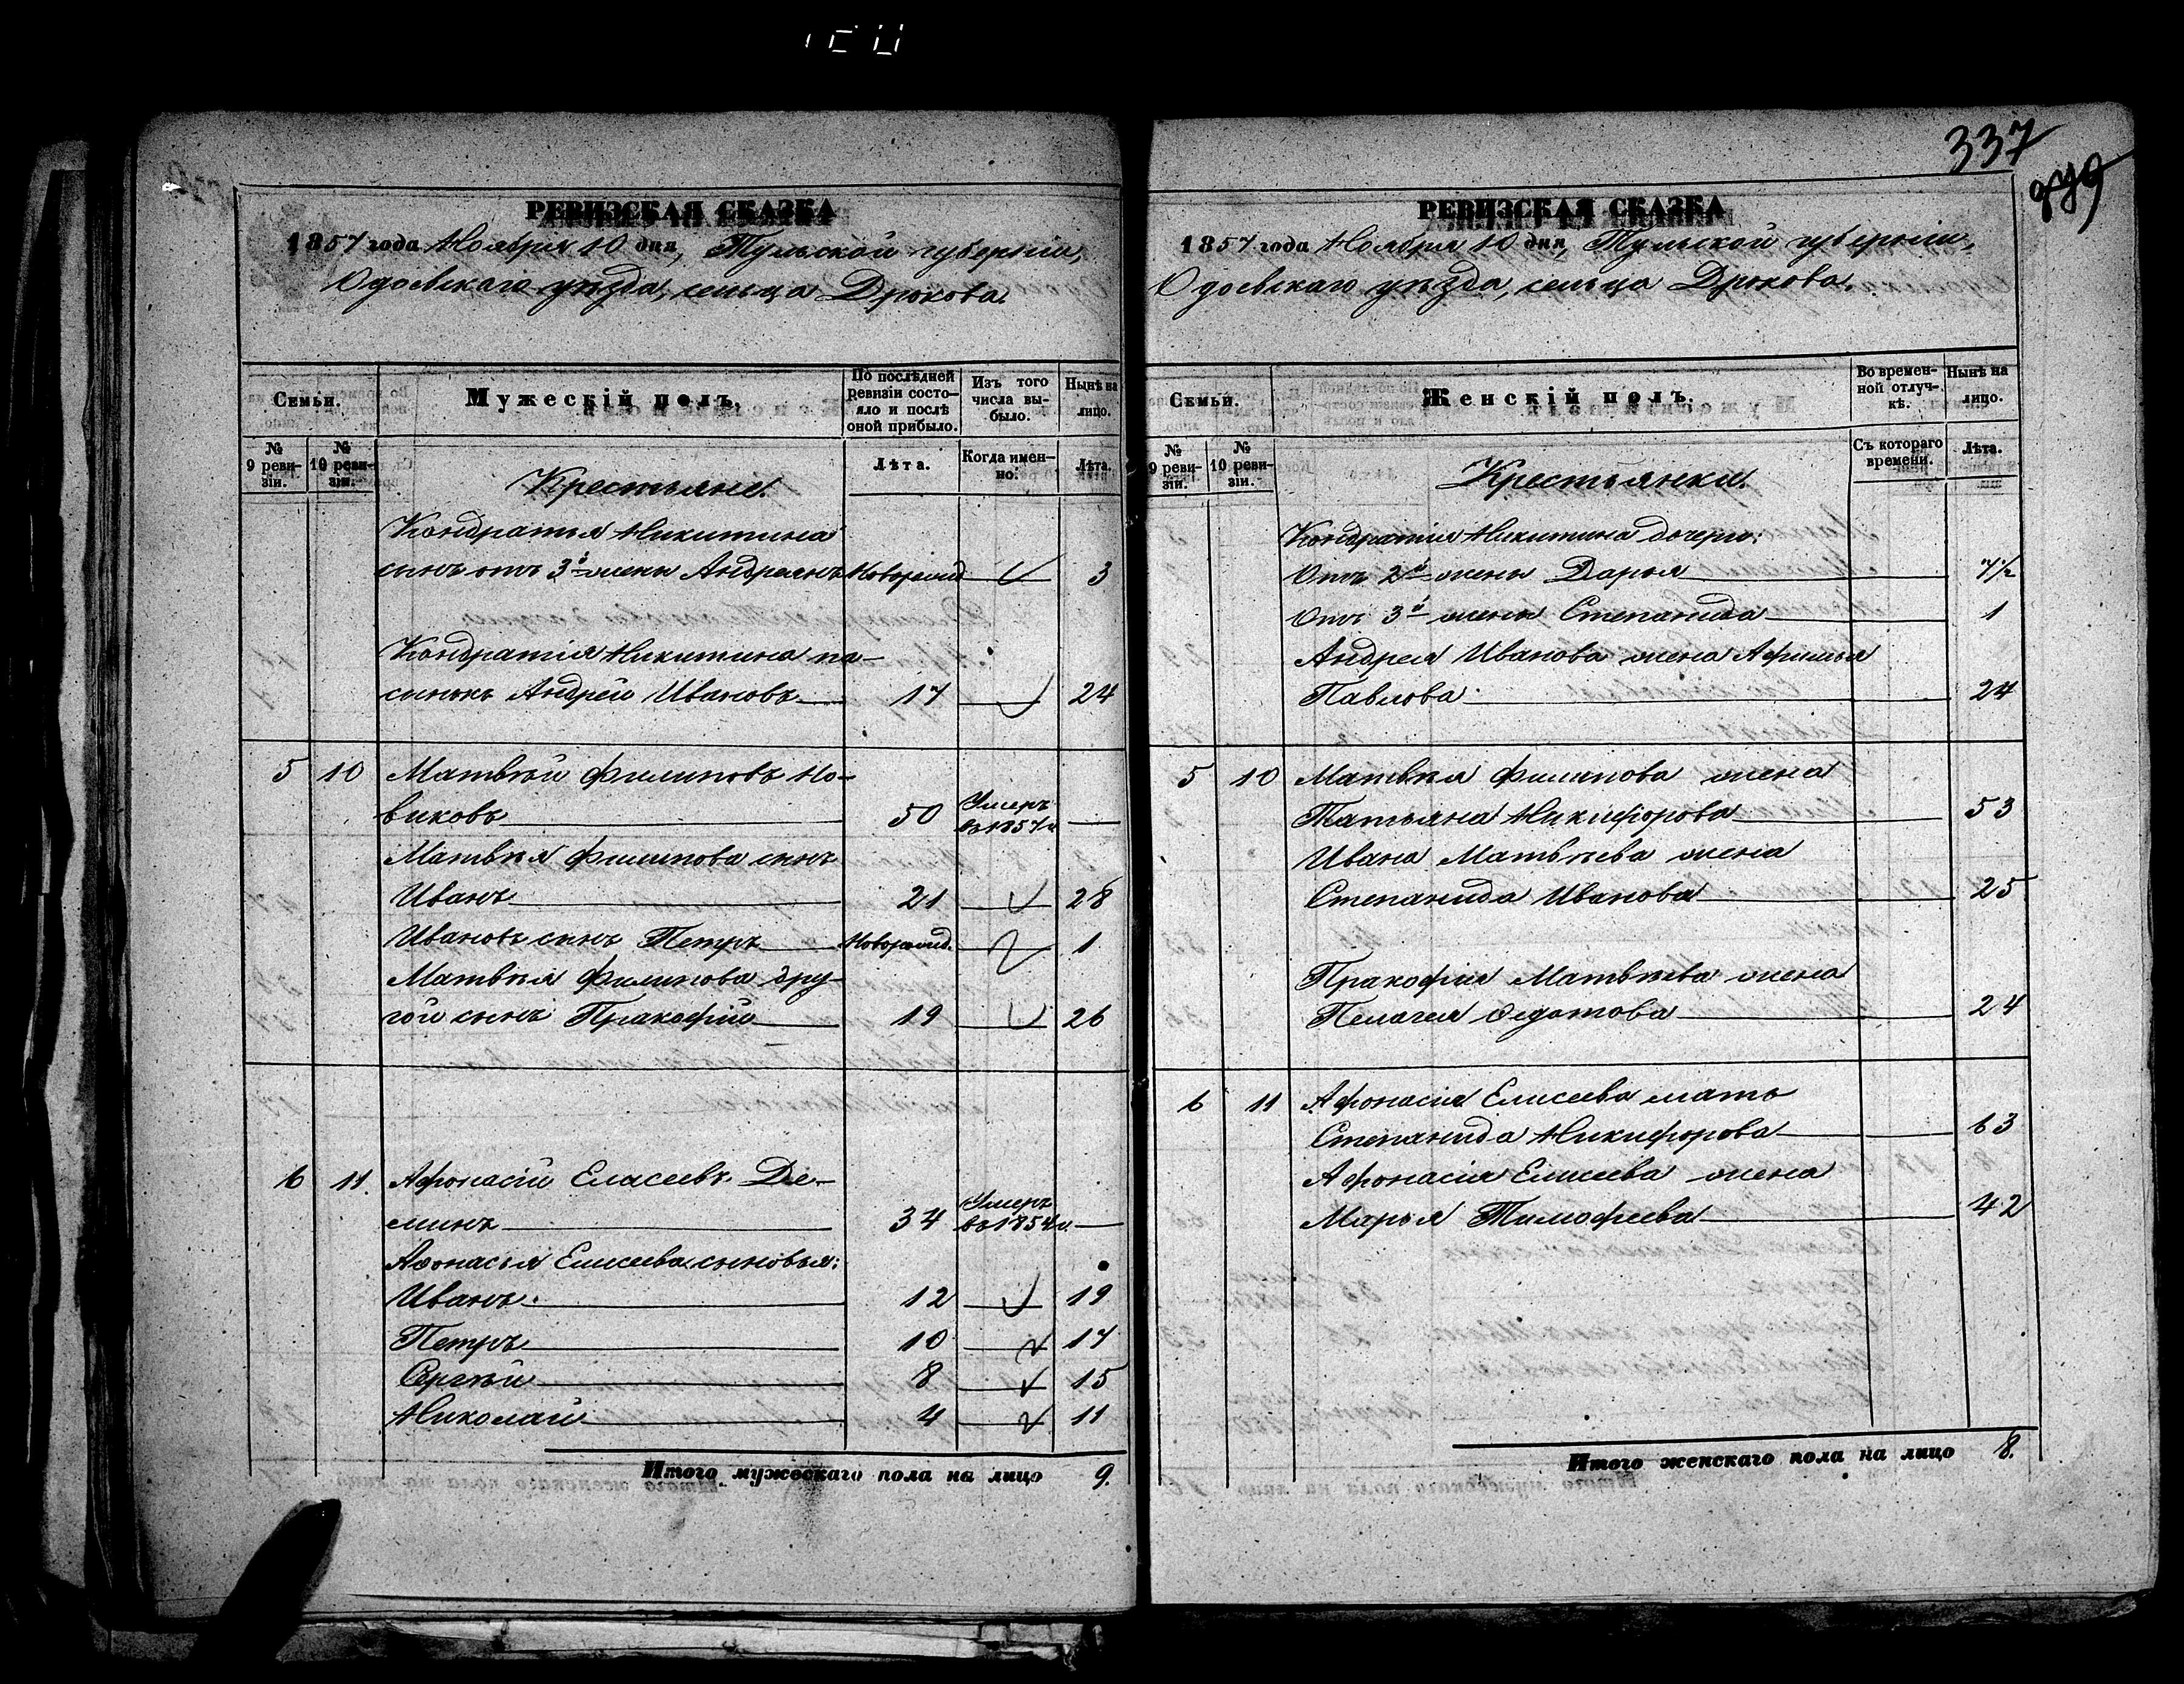 337
РЕВИЗСКАЯ СКАЗКА
1857 года Ноября 10 дня, Тульской губерніи,
Одоевскаго уѣзда, сельца Дрокова.
Семьи.
Мужескій полъ.
По послѣдней ревизіи состояло и послѣ оной прибыло.
Изъ того числа выбыло.
Нынѣ на лицо.
№ 9 ревизіи.
№ 10 ревизіи.
Лѣта.
Когда именно.
Лѣта.
Крестьяне.
Кондратья Никитина
сынъ отъ 3й жены Андреянъ Новорожд 3
Кондратія Никитина па-
сынокъ Андрей Ивановъ 17 24
5 10 Матвѣй Филиповъ Но-
виковъ 50 Умеръ въ 1857 г
Матвѣя Филипова сынъ
Иванъ 21 28
Ивановъ сынъ Петръ Новорожд. 1
Матвѣя Филипова дру-
гой сынъ Пракофій 19 26
6 11. Афонасій Елисеевъ Де-
минъ 34 Умеръ въ 1854 г.
Афонасья Елисеева сыновья:
Иванъ. 12 19
Петръ 10 17
Сергѣй 8 15
Николай 4 11
Итого мужескаго пола на лицо 9.
РЕВИЗСКАЯ СКАЗКА
1857 года Ноября 10 дня, Тульской губерніи,
Одоевскаго уѣзда, сельца Дрокова.
Семьи.
Женскій полъ.
Во временной отлучкѣ.
Нынѣ на лицо.
№ 9 ревизіи.
№ 10 ревизіи.
Съ котораго времени.
Лѣта.
Крестьянки.
Кондратія Никитина дочери:
Отъ 2й жены Дарья 7½
Отъ 3й жены Степанида 1
Андрея Иванова жена Афимья
Павлова 24
5 10 Матвѣя Филипова жена
Татьяна Никифорова 53
Ивана Матвѣева жена
Степанида Иванова 25
Пракофія Матвѣева жена
Пелагея Федотова 24
6 11 Афонасія Елисеева мать
Степанида Никифорова 63
Афонасія Елисеева жена
Марья Тимофеева 42
Итого женскаго пола на лицо 8.